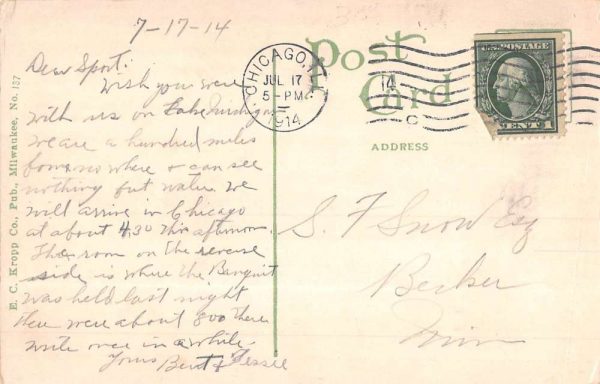 7-17-14
Dear Sport:
Wish you were
with us on Lake Michigan
we are a hundred miles
from no where & can see
nothing but water. We
will arrive in Chicago
at about 4,30 this afternoon.
The room on the reverse
side is where the Banquit
was held last night
there were about 800 there
write once in a while.
Yours Bent & Jessie
E. C. Kropp Co., Pub., Milwaukee, No. 137
CHICAGO, ILL
JUL 17
5-PM
1914
14
C
Post
Card
U.S. POSTAGE
CENT 1
ADDRESS
S. F Snow Esq
Becker
Minn